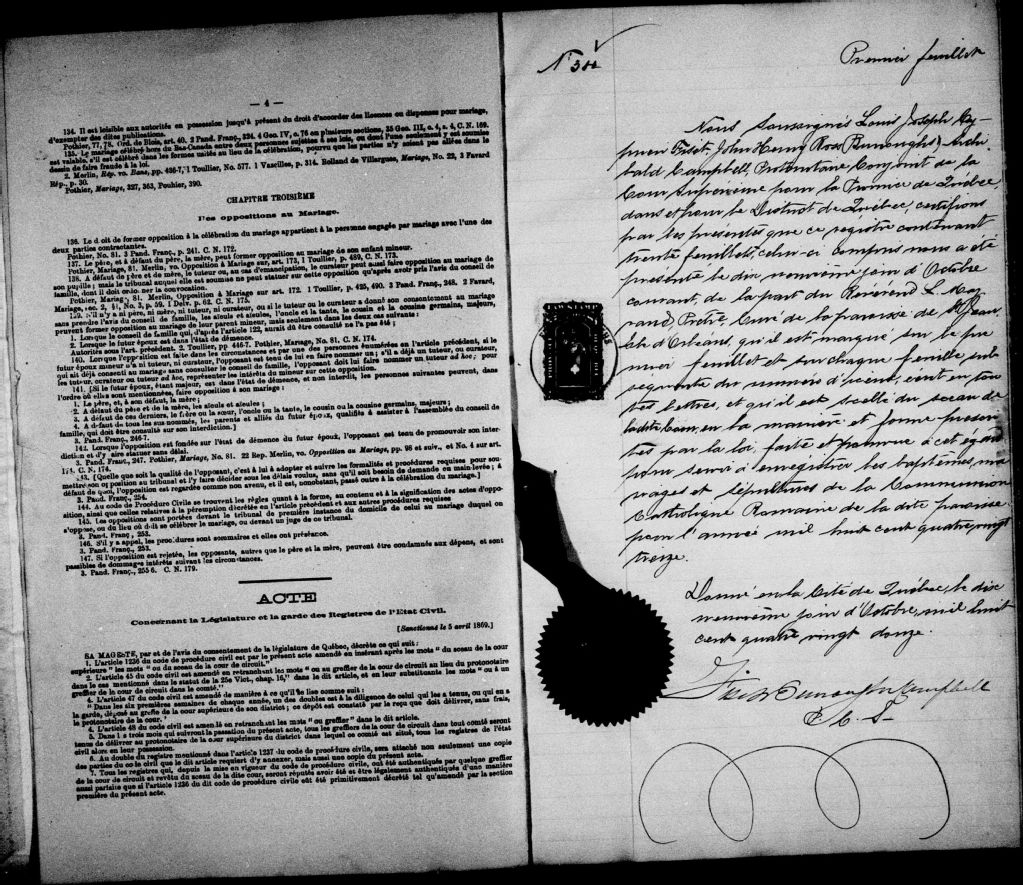 — 4 —
134. Il est loisible aux autorités en possession jusqu'à présent du droit d'accorder des licences ou dispenses pour mariage,
d'exempter des dites publications.
Pothier, 77, 78. Ord. de Blois, art. 40. 2 Pand. Franç., 324. 4 Geo. IV, c. 76 en plusieurs sections, 35 Geo. III, c. 4, s. 4, C. N. 169.
135. Le mariage célébré hors du Bas-Canada entre deux personnes sujettes à ses lois, ou dont l'une seulement y est soumise
est valable, s'il est célébré dans les formes usitées au lieu de la célébration, pourvu que les parties n'y soient pas allées dans le
dessin de faire fraude à la loi.
2. Merlin, Rép. vo. Bans, pp. 436-7, 1 Toullier, No. 577. 1 Vazilles, p. 314. Rolland de Villargues, Mariage, No. 22, 3 Favard
Rép., p. 30.
Pothier, Mariage, 327, 363, Pouhier, 390.
CHAPITRE TROISIÈME
Des oppositions au Mariage.
136. Le droit de former opposition à la célébration du mariage appartient à la personne engagée par mariage avec l'une des
deux parties contractantes.
Pothier, No. 81. 3 Pand. Franç., p. 241. C. N. 172.
137. Le père, et à défaut du père, la mère, peut former opposition au mariage de son enfant mineur.
Pothier, Mariage, 81. Merlin, vo. Opposition à Mariage, sur art. 173, 1 Toullier, p. 489, C. N. 173.
138. A défaut de père et de mère, le tuteur ou, au cas d'émancipation, le curateur peut aussi faire opposition au mariage de
son pupille; mais le tribunal auquel elle est soumise ne peut statuer sur cette opposition qu'après avoir pris l'avis du conseil de
famille, dont il doit ordonner la convocation.
Pothier, Mariage, 81. Merlin, Opposition à Mariage sur art. 172. 1 Toullier, p. 425, 490. 3 Pand. Franç., 248. 2 Favard,
Mariage, sec. 2, § 1, No. 3, p. 59. 1 Delv. p. 62. C. N. 175.
139. S'il n'y a ni père, ni mère, ni tuteur, ni curateur, ou si le tuteur ou le curateur a donné son consentement au mariage
sans prendre l'avis du conseil de famille, les aïeuls et aïeules, l'oncle et la tante, le cousin et la cousine germains, majeurs,
peuvent former opposition au mariage de leur parent mineur, mais seulement dans les deux cas suivants:
1. Lorsque le conseil de famille qui, d'après l'article 122, aurait dû être consulté ne l'a pas été;
2. Lorsque le futur époux est dans l'état de démence.
Autorités sous l'art. précédent. 2. Toullier, pp. 466-7. Pothier, Mariage, No. 81. C. N. 174.
140. Lorsque l'opposition est faite dans les circonstances et par une des personnes énumérées en l'article précédent, si le
futur époux mineur n'a ni tuteur, ni curateur, l'opposant est tenu de lui en faire nommer un; s'il a déjà un tuteur, ou curateur,
qui ait déjà consenti au mariage sans consulter le conseil de famille, l'opposant doit lui faire nommer un tuteur ad hoc; pour
les tuteur, curateur ou tuteur ad hoc, représenter les intérêts du mineur sur cette opposition.
141. [Si le futur époux, étant majeur, est dans l'état de démence, et non interdit, les personnes suivantes peuvent, dans
l'ordre où elles sont mentionnées, faire opposition à son mariage:
1. Le père, et, à son défaut, la mère;
2. A défaut du père et de la mère, les aïeuls et aïeules;
3. A défaut de ces derniers, le frère ou la sœur, l'oncle ou la tante, le cousin ou la cousine germains, majeurs;
4. A défaut de tous les sus nommés, les parents et alliés du futur époux, qualifiés à assister à l'assemblée du conseil de
famille, qui doit être consulté sur son interdiction.]
3. Pand. Franç., 246-7.
142. Lorsque l'opposition est fondée sur l'état de démence du futur époux, l'opposant est tenu de promouvoir son inter-
diction et d'y faire statuer sans délai.
3. Pand. Franç., 247. Pothier, Mariage, No. 81. 22 Rep. Merlin, vo. Opposition au Mariage, pp. 96 et suiv., et No. 4 sur art.
174. C. N. 174.
143. [Quelle que soit la qualité de l'opposant, c'est à lui à adopter et suivre les formalités et procédures requises pour sou-
mettre son opposition au tribunal et l'y faire décider sous les délais voulus, sans qu'il soit besoin de demande en main-levée; à
défaut de quoi, l'opposition est regardée comme non avenu, et il est, nonobstant, passé outre à la célébration du mariage.]
3. Pand. Franç., 254.
144. Au code de Procédure Civile se trouvent les règles quant à la forme, au contenu et à la signification des actes d'oppo-
sition, ainsi que celles relatives à la péremption décrétée en l'article précédent et aux autres procédures requises
145. Les oppositions sont portées devant le tribunal de première instance du domicile de celui au mariage duquel on
s'oppose, ou du lieu où doit se célébrer le mariage, ou devant un juge de ce tribunal.
3. Pand. Franç., 253.
146. S'il y a appel, les procédures sont sommaires et elles ont préséance.
3. Pand. Franç., 253.
147. Si l'opposition est rejetée, les opposants, autres que le père et la mère, peuvent être condamnés aux dépens, et sont
passibles de dommages intérêts suivant les circonstances.
3. Pand. Franç., 255 6. C. N. 179.
ACTE
Concernant la Législature et la garde des Registres de l'Etat Civil.
[Sanctionné le 5 avril 1869.]
SA MAGESTE, par et de l'avis du consentement de la législature de Québec, décrète ce qui suit:
1. L'article 1236 du code de procédure civil est par le présent acte amendé en insérant après les mots "du sceau de la cour
supérieure" les mots "ou du sceau de la cour de circuit."
2. L'article 45 du code civil est amendé en retranchant les mots "ou au greffier de la cour de circuit au lieu du protonotaire
dans le cas mentionné dans le statut de la 25e Vict., chap. 16," dans le dit article, et en leur substituants les mots "ou à un
greffier de la cour de circuit dans le comté."
3. L'article 47 du code civil est amendé de manière à ce qu'il se lise comme suit:
"Dans les six premières semaines de chaque année, un des doubles est à la diligence de celui qui les a tenus, ou qui en a
la garde, déposé au greffe de la cour supérieure de son district; ce dépôt est constaté par le reçu que doit délivrer, sans frais,
le protonotaire de la cour.
4. L'article 48 du code civil est amendé en retranchant les mots "ou greffier" dans le dit article.
5. Dans les trois mois qui suivront la passation du présent acte, tous les greffiers de la cour de circuit dans tout comté seront
tenus de délivrer au protonotaire de la cour supérieure du district dans lequel ce comté est situé, tous les registres de l'état
civil alors en leur possession.
6. Au double du registre mentionné dans l'article 1237 du code de procédure civile, sera attaché non seulement une copie
des parties du code civil que le dit article requiert d'y annexer, mais aussi une copie du présent acte.
7. Tous les registres qui, depuis la mise en vigueur du code de procédure civile, ont été authentiqués par quelque greffier
de la cour de circuit et revêtu du sceau de la dite cour, seront réputés avoir été et être légalement authentiqués d'une manière
aussi parfaite que si l'article 1236 du dit code de procédure civile eût été primitivement décrété tel qu'amendé par la section
première du présent acte.
N° 34
Premier feuillet
Nous soussignés Louis Joseph Cy-
prien Fiset, John Henry Ross Burroughs & Archi-
bald Campbell, Protonotaire Conjoint de la
Cour Supérieure pour la Province de Québec,
dans et pour le District de Québec, certifions
par les présentes que ce registre contenant
trente feuillets, celui-ci compris nous a été
présenté le dix neuvième jour d'Octobre
courant, de la part du Révérend L. 
Prêtre, Curé de la paroisse de St Jean
Ile d'Orléans, qu'il est marqué sur le pre-
mier feuillet et sur chaque feuillet sub-
séquente du numéro d'icelui, écrit en tou-
tes lettres, et qu'il est scellé du sceau de
ladite Cour, en la manière et forme prescri-
tes par la loi, faite et pourvue à cet égard
pour servir à enregistrer les baptêmes, ma-
riages et sépultures de la Communion
Catholique Romaine de la dite paroisse
pour l'année mil huit cent quatre vingt
treize.
Donné en la Cité de Québec, le dix
neuvième jour d'Octobre, mil huit
cent quatre vingt douze.
Fiset Burroughs Campbell
P. C. S.